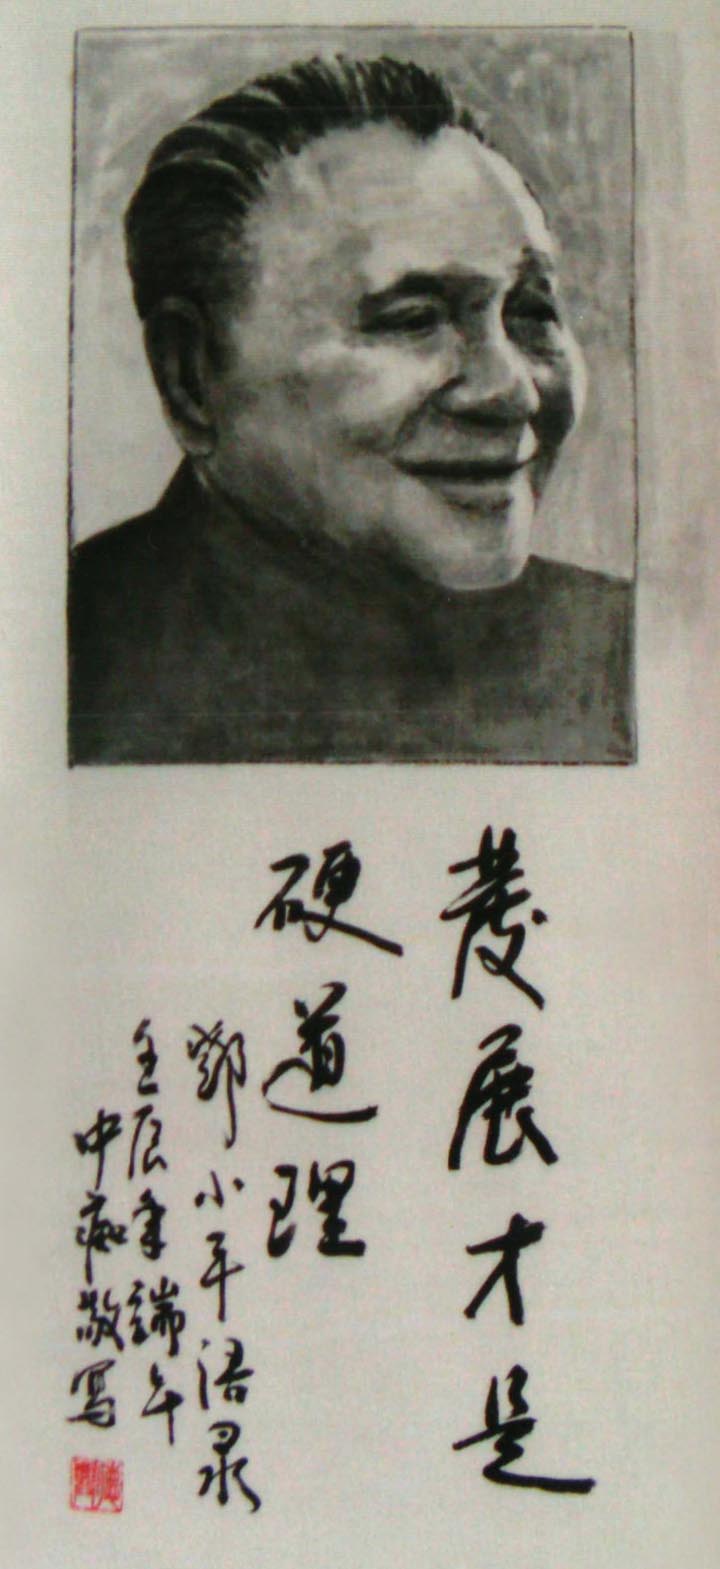 發展才是
硬道理
鄧小平语录
壬辰年端午
中痴敬寫